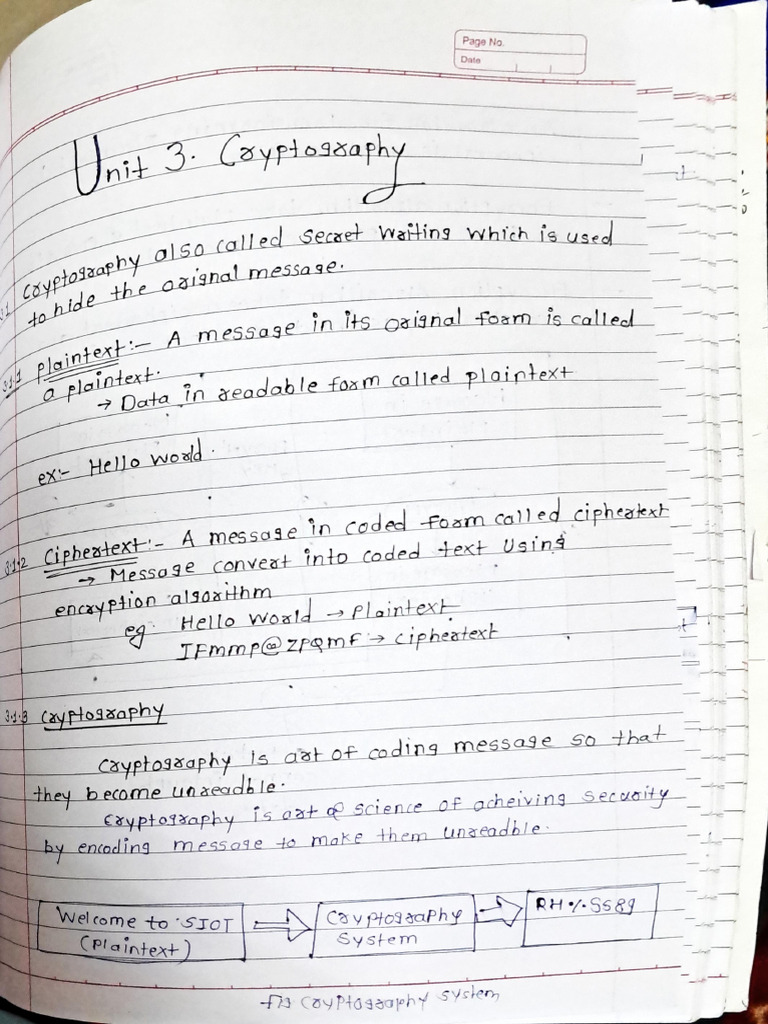 Page No.
Date
Unit 3. Cryptography
3.1 Cryptography also called secret writing which is used
to hide the orignal message.
3.1.1 Plaintext:- A message in its orignal form is called
a plaintext.
→ Data in readable form called plaintext
ex:- Hello world.
3.1.2 Ciphertext:- A message in coded form called ciphertext
→ Message convert into coded text Using
encryption algorithm
eg. Hello World → Plaintext
IFmmp@ZPQmF → Ciphertext
3.1.3 Cryptography
Cryptography is art of coding message so that
they become unreadble.
Cryptography is art & science of acheiving security
by encoding message to make them unreadble.
Welcome to SIOT
(Plaintext)
Cryptography
System
RH%.5589
fig Cryptography system